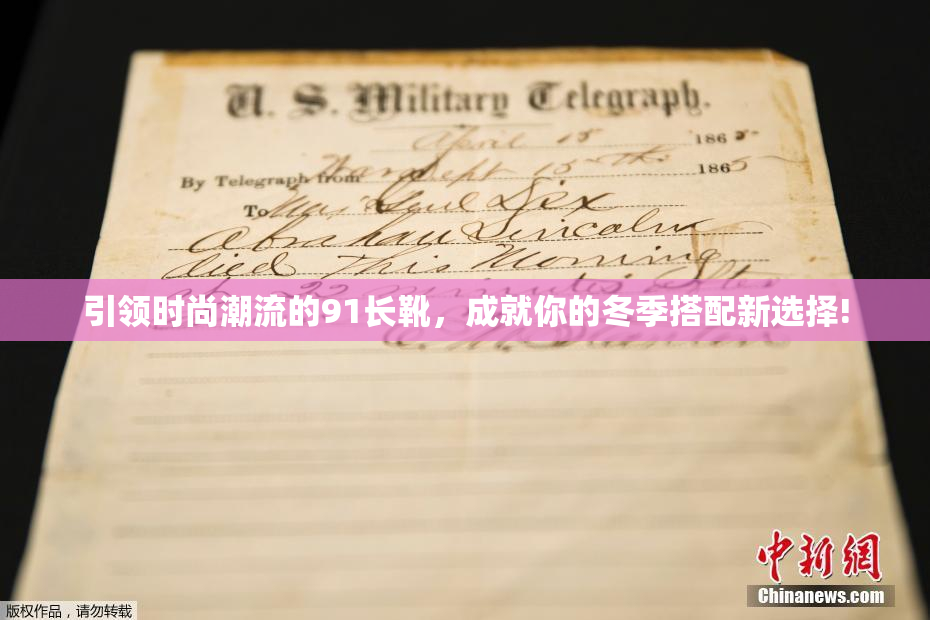 U. S. Military Telegraph.
April 15 1865
By Telegraph from War Dept 15th 1865
To Maj Genl Dix
Abraham Lincoln
died this Morning
at 22 minutes after
引领时尚潮流的91长靴，成就你的冬季搭配新选择!
Stanton
中新网
Chinanews.com
版权作品，请勿转载